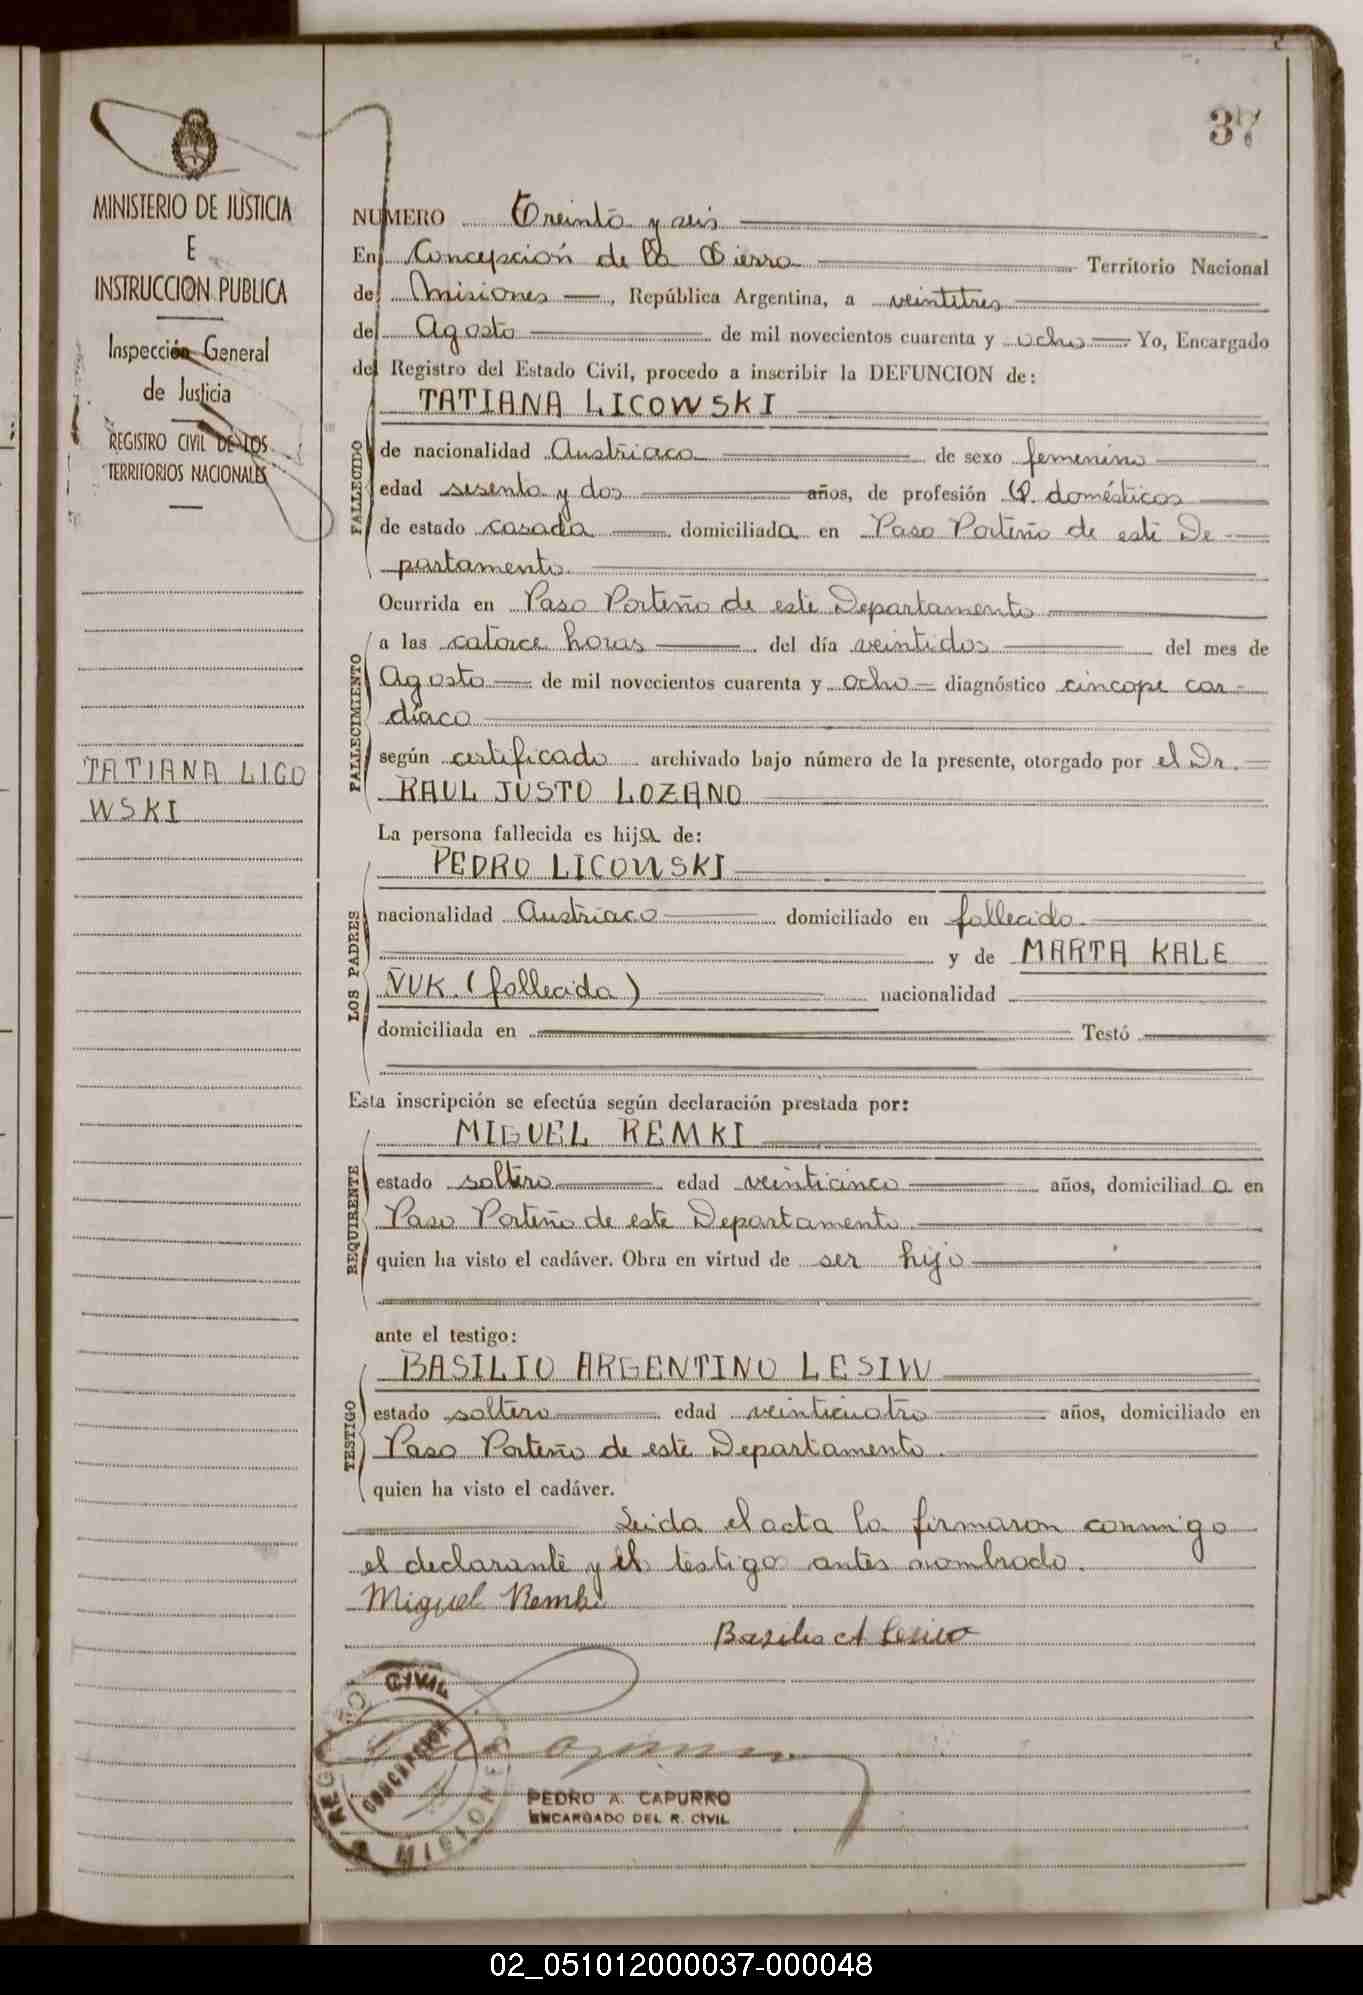 37
MINISTERIO DE JUSTICIA
E
INSTRUCCION PUBLICA
Inspección General
de Justicia
REGISTRO CIVIL DE LOS
TERRITORIOS NACIONALES
TATIANA LICO
WSKI
NUMERO Treinta y seis
En Concepción de la Sierra Territorio Nacional
de Misiones, República Argentina, a veintitres
de Agosto de mil novecientos cuarenta y ocho Yo, Encargado
del Registro del Estado Civil, procedo a inscribir la DEFUNCION de:
TATIANA LICOWSKI
FALLECIDO
de nacionalidad Austriaca de sexo femenino
edad sesenta y dos años, de profesión Q. domésticos
de estado casada domiciliada en Paso Porteño de este De
partamento.
Ocurrida en Paso Porteño de este Departamento
FALLECIMIENTO
a las catorce horas del día veintidos del mes de
Agosto de mil novecientos cuarenta y ocho diagnóstico cincope car-
díaco
según certificado archivado bajo número de la presente, otorgado por el Dr.
RAUL JUSTO LOZANO
La persona fallecida es hija de:
LOS PADRES
PEDRO LICOWSKI
nacionalidad Austriaco domiciliado en fallecido
y de MARTA KALE
ÑUK. (fallecida) nacionalidad
domiciliada en Testó
Esta inscripción se efectúa según declaración prestada por:
REQUIRENTE
MIGUEL REMKI
estado soltero edad veinticinco años, domiciliado en
Paso Porteño de este Departamento
quien ha visto el cadáver. Obra en virtud de ser hijo
ante el testigo:
TESTIGO
BASILIO ARGENTINO LESIW
estado soltero edad veinticuatro años, domiciliado en
Paso Porteño de este Departamento
quien ha visto el cadáver.
Leida el acta la firmaron conmigo
el declarante y el testigo antes nombrado.
Miguel Remki
Basilio A Lesiw
REGISTRO CIVIL
CONCEPCION
MISIONES
PEDRO A. CAPURRO
ENCARGADO DEL R. CIVIL
02_051012000037-000048